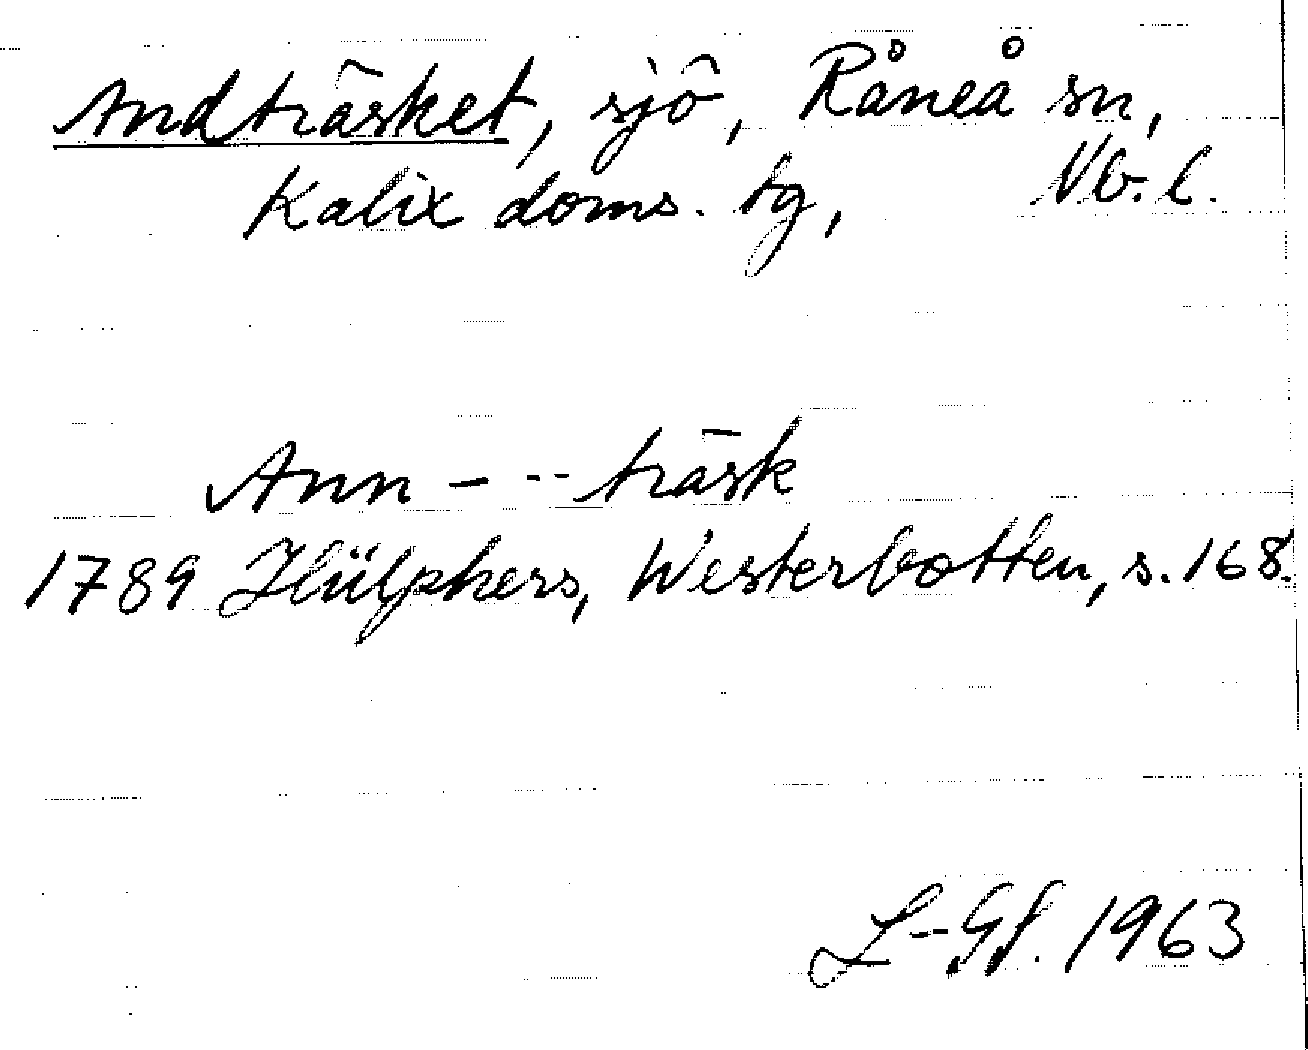 Andträsket, sjö, Råneå sn,
Kalix doms. tg, Vb. l.
Ann - -- träsk
1789 Hülphers, Westerbotten, s. 168.
L-Gf. 1963